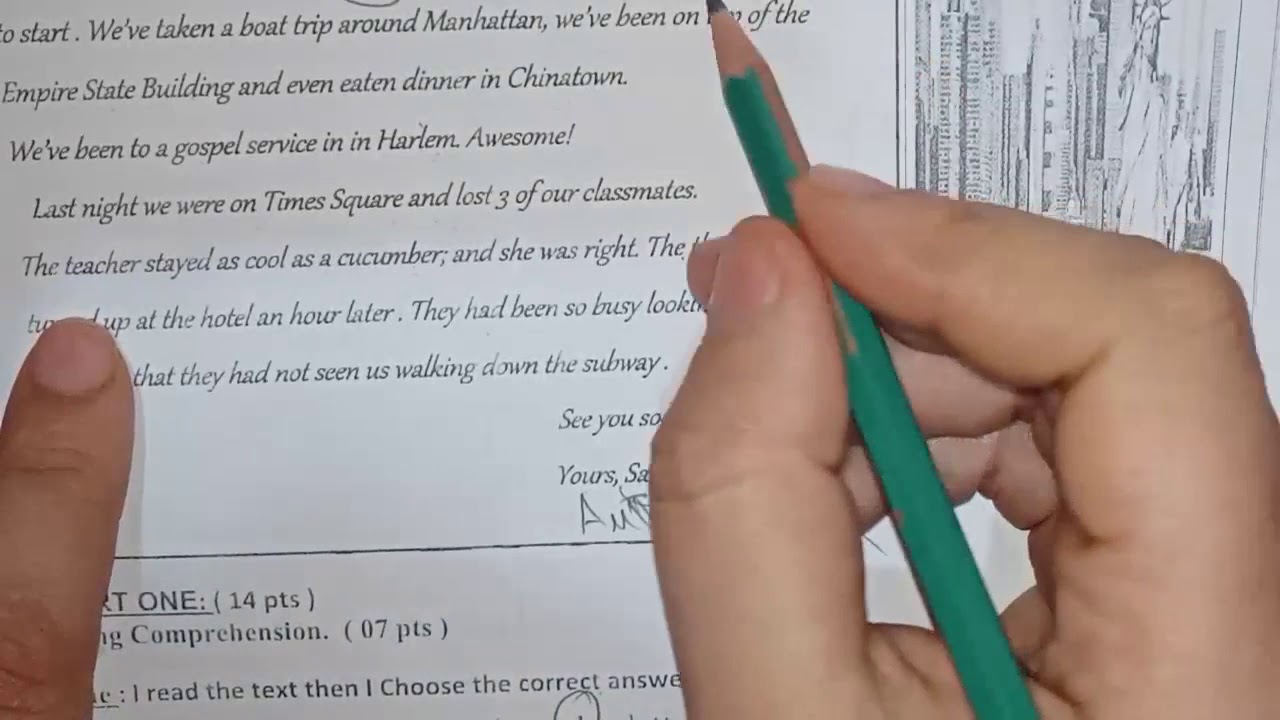 to start . We've taken a boat trip around Manhattan, we've been on of the
Empire State Building and even eaten dinner in Chinatown.
We've been to a gospel service in in Harlem. Awesome!
Last night we were on Times Square and lost 3 of our classmates.
The teacher stayed as cool as a cucumber; and she was right. The
up at the hotel an hour later . They had been so busy
that they had not seen us walking down the subway .
See you
Yours,
ONE: ( 14 pts )
Comprehension. ( 07 pts )
: I read the text then I Choose the correct